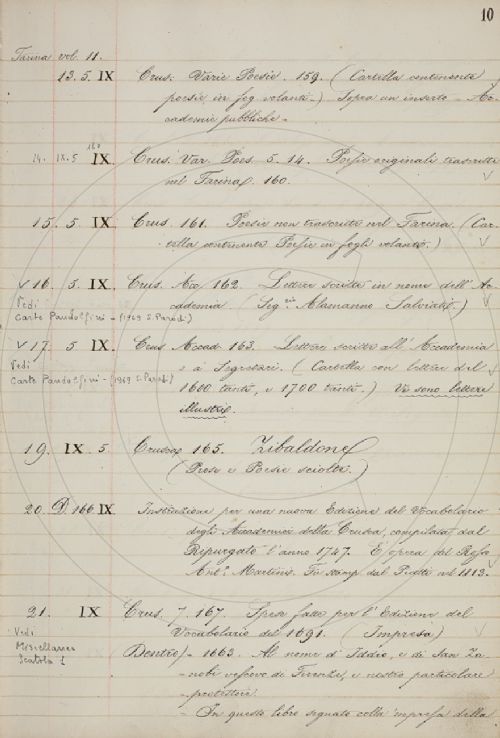 10
Farina vol. 11.
13. 5. IX Crus. Varie Poesie. 159. (Cartella contenente
poesie in fog. volanti.) Sopra un inserto - Ac-
cademie pubbliche -
160
14. IX. 5 IX. Crus. Var. Poes. 5. 14. Poesie originali trascritte
nel Farina. 160.
15. 5 IX. Crus. 161. Poesie non trascritte nel Farina. (Car-
tella contenente Poesie in fogli volanti.)
√ 16. 5 IX. Crus. Acc. 162. Lettere scritte in nome dell' Ac-
Vedi cademia (Seg.rio Alamanno Salviati.)
Carte Pandolfini - (1969 S. Parodi)
√ 17. 5 IX Crus. Accad. 163. Lettere scritte all' Accademia
Vedi e a' Segretari. (Cartella con lettere del
Carte Pandolfini - (1969 S. Parodi) 1600 tante, e 1700 tante.) Vi sono lettere
illustri.
19. IX. 5. Crusca 165. Zibaldone
(Prose e Poesie sciolte.)
20. D. 166 IX Instruzione per una nuova Edizione del Vocabolario
degli Accademici della Crusca, compilata dal
Ripurgato l'anno 1747. E' opera del Rosso
Ant.o Martini. Fu stamp. dal Piatti nel 1813.
21. IX Crus. 7. 167. Spese fatte per l' Edizione del
Vedi Vocabolario del 1691. (Impresa)
Miscellanea Dentro) - 1663. Al nome d' Iddio, e di San Za-
Scatola 1 nobi vescovo di Firenze, e nostro particolare
protettore.
- In questo libro segnato colla impresa della